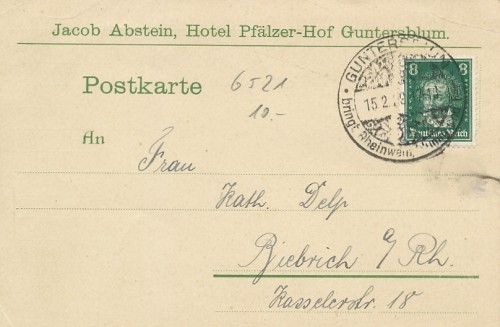 Jacob Abstein, Hotel Pfälzer-Hof Guntersblum.
Postkarte
6521
10.-
GUNTERSBLUM
15.2.
bringt Rheinwein,
8 8
Deutsches Reich
An
Frau
Kath. Delp
Biebrich a/Rh.
Kasselerstr. 18